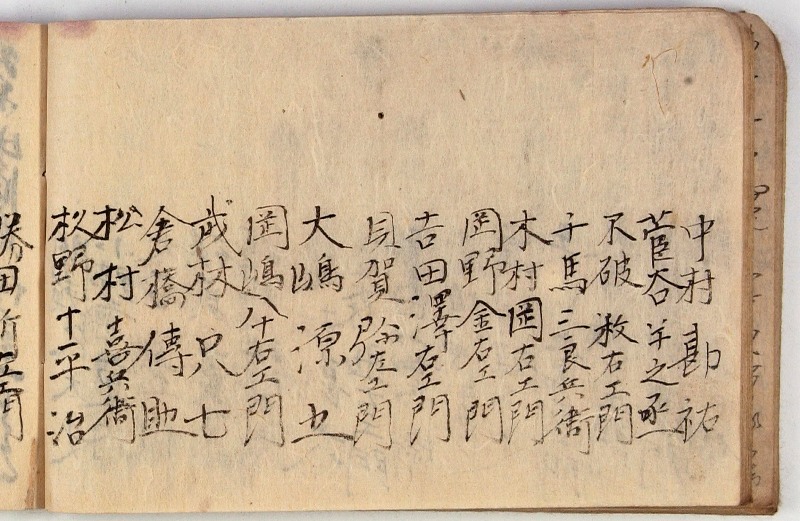 中村勘祐
菅谷半之丞
不破数右エ門
千馬三良兵衛
木村岡右エ門
岡野金右エ門
吉田澤右エ門
貝賀弥左エ門
大嶋源五
岡嶋八十右エ門
武林只七
倉橋傳助
松村喜兵衛
杦野十平治
勝田新左エ門